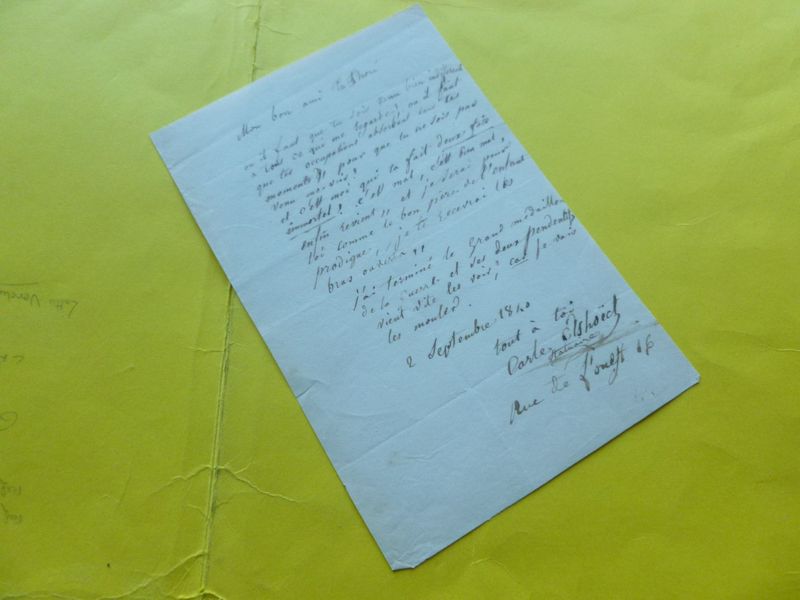 Mon bon ami
ou il faut que tu sois bien indifférent
à tout ce qui me regarde; ou il faut
que tes occupations absorbent tous tes
moments, pour que tu ne sois pas
venu me voir!
et c'est moi qui t'a fait deux fois
immortel! c'est mal, c'est bien mal,
enfin revient, et je serai pour
toi comme le bon père de l'enfant
prodigue, je te recevrai les
bras ouverts,
j'ai terminé le grand médaillon
de la guerre et ses deux pendentifs
vient vite les voir; car je vais
les mouler.
2 Septembre 1840
tout à toi
Carle Elshoëct
statuaire
Rue de l'ouest 16
Lettre